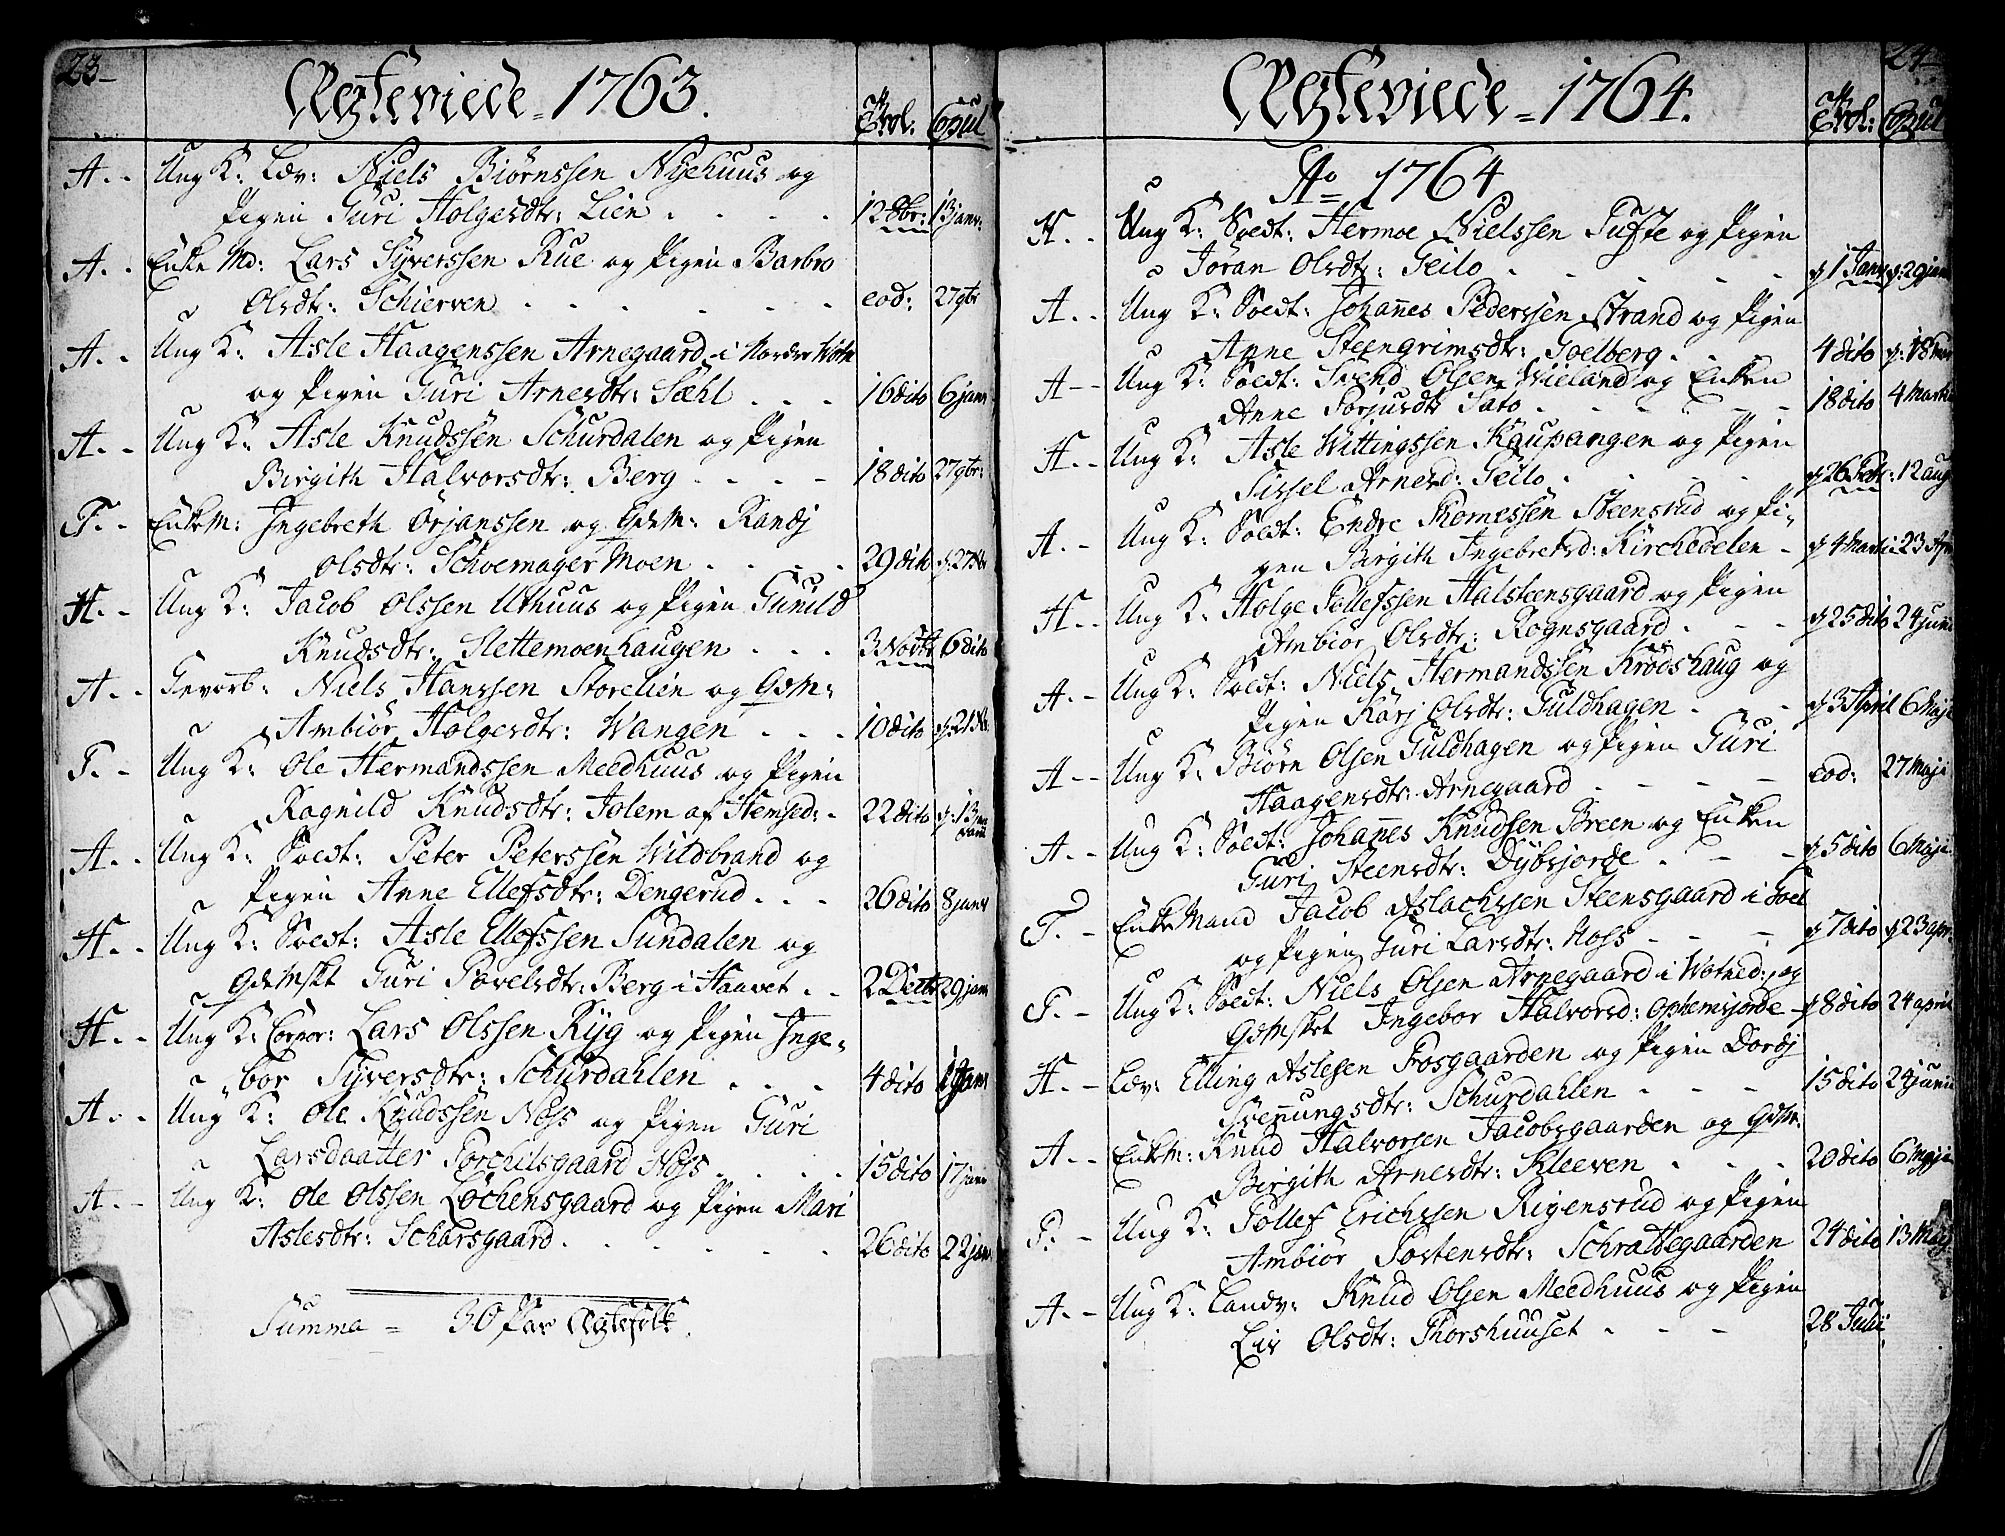 23-
Ægteviede = 1763.
Trol. Copul
A. - Ung K: Lov: Niels Biørnssen Nyehuus og
Pigen Guri Holgersdtr: Lien . . . . 12 8br: 13 janv:
A. - Enke Md: Lars Syverssen Rue og Pigen Barbro
Olsdtr: Schierven - - - - eod: 27 9br
A. - Ung K: Asle Haagenssen Arnegaard i Nordre
og Pigen Guri Arnesdtr: Sæhl . . . 16 dito 6 janv
A. - Ung K: Asle Knudssen Schurdalen og Pigen
Birgith Halvorsdtr: Berg - - - - 18 dito 27 9br:
T. - Enkem: Ingebreth Ørjanssen og Gdm: Randj
Olsdtr: Schoemager Moen . . . . 29 dito
H. - Ung K: Jacob Olssen Uthuus og Pigen Gunild
Knudsdtr: Slettemoenhaugen . . . 3 Novbr 6 dito
A. - Gevorb: Niels Hanssen Storelien og Gdm:
Ambiør Holgersdtr: Wangen . . . 10 dito
T. - Ung K: Ole Hermandssen Meedhuus og Pigen
Ragnild Knudsdtr: Jolem af Hemsed: - 22 dito
A. - Ung K: Soldt: Peter Peterssen Wildbrand og
Pigen Anne Ellefsdtr: Dengerud . . . 26 dito 8 janv
H. - Ung K: Soldt: Asle Ellefssen Sundalen og
Gdmskt Guri Povelsdtr: Berg i Haavet . . 2 Decbr 29 janv
H. - Ung K: Corpor: Lars Olssen Ryg og Pigen Inge=
bor Syversdtr: Schurdahlen . . . 4 dito 1 janv
A. - Ung K: Ole Knudssen Noss og Pigen Guri
Larsdaatter Torchilsgaard Noss . . . . 15 dito 17
A. - Ung K: Ole Olssen Lochensgaard og Pigen Mari
Aslesdtr: Scharsgaard . . . . . . 26 dito 22 jan
Summa = 30 Par Ægtefolk.
24
Ægteviede = 1764.
Trol: Copul
Ao 1764
H. - Ung K: Soldt: Hermoe Nielssen Tufte og Pigen
Jøran Olsdtr: Geilo - - - - p 1 Janv p: 29 janv
A. - Ung K: Soldt: Johannes Pederssen Strand og Pigen
Anne Steengrimsdtr: Goelberg . . . 4 dito
A - - Ung K: Soldt: Svend Olsen Wiieland og Enken
Anne Torjusdtr Sato . . . . 18 dito 4 Martii
H. - Ung K: Asle Wittingssen Kaupangen og Pigen
Sissel Arnesd: Geilo . . . . p 26 Febr: 12 aug
A. - Ung K: Soldt: Endre Thomessen Steensrud og Pi=
gen Birgith Ingebretsd: Kirchedelen - p 4 Martii 23 Apr
H. - Ung K: Holge Tollefssen Halsteensgaard og Pigen
Ambiør Olsdtr: Rognsgaard . . - p 25 dito 24 junii
A. - Ung K: Soldt: Niels Hermandssen Krødshaug og
Pigen Karj Olsdtr: Guldhagen - - p 3 April 6 Maji
A - - Ung K: Biørn Olsen Guldhagen og Pigen Guri
Haagensdtr: Arnegaard - - - - eod: 27 Maji
A. - Ung K: Soldt: Johannes Knudsen Breen og Enken
Guri Steensdtr: Dybsjorde . - - p 5 dito 6 Maji
T. - Enke Mand Jacob Aslachssen Steensgaard i Goel
og Pigen Guri Larsdtr: Noss - - - p 7 dito p 23 apr:
T. - Ung K: Soldt: Niels Olsen Arnegaard i Wotned: og
Gdmskt Ingebor Halvorsd: Ophemsjorde - p 8 dito 24 april
H. - Lov: Elling Aslesen Frosgaarden og Pigen Dordj
Svenungsdtr: Schurdahlen - - - 15 dito 24 junii
A - - Enkm: Knud Halvorsen Jacobsgaarden og Gdm:
Birgith Arnesdtr: Kleeven - - - 20 dito 6 Maji
T: - Ung K: Tollef Erichssen Rigensrud og Pigen
Ambiør Torstensdtr: Schrattegaarden 24 dito 13 Maj
A - - Ung K: Landv: Knud Olsen Meedhuus og Pigen
Liv Olsdtr: Thorshuuset - - - 28 Julii